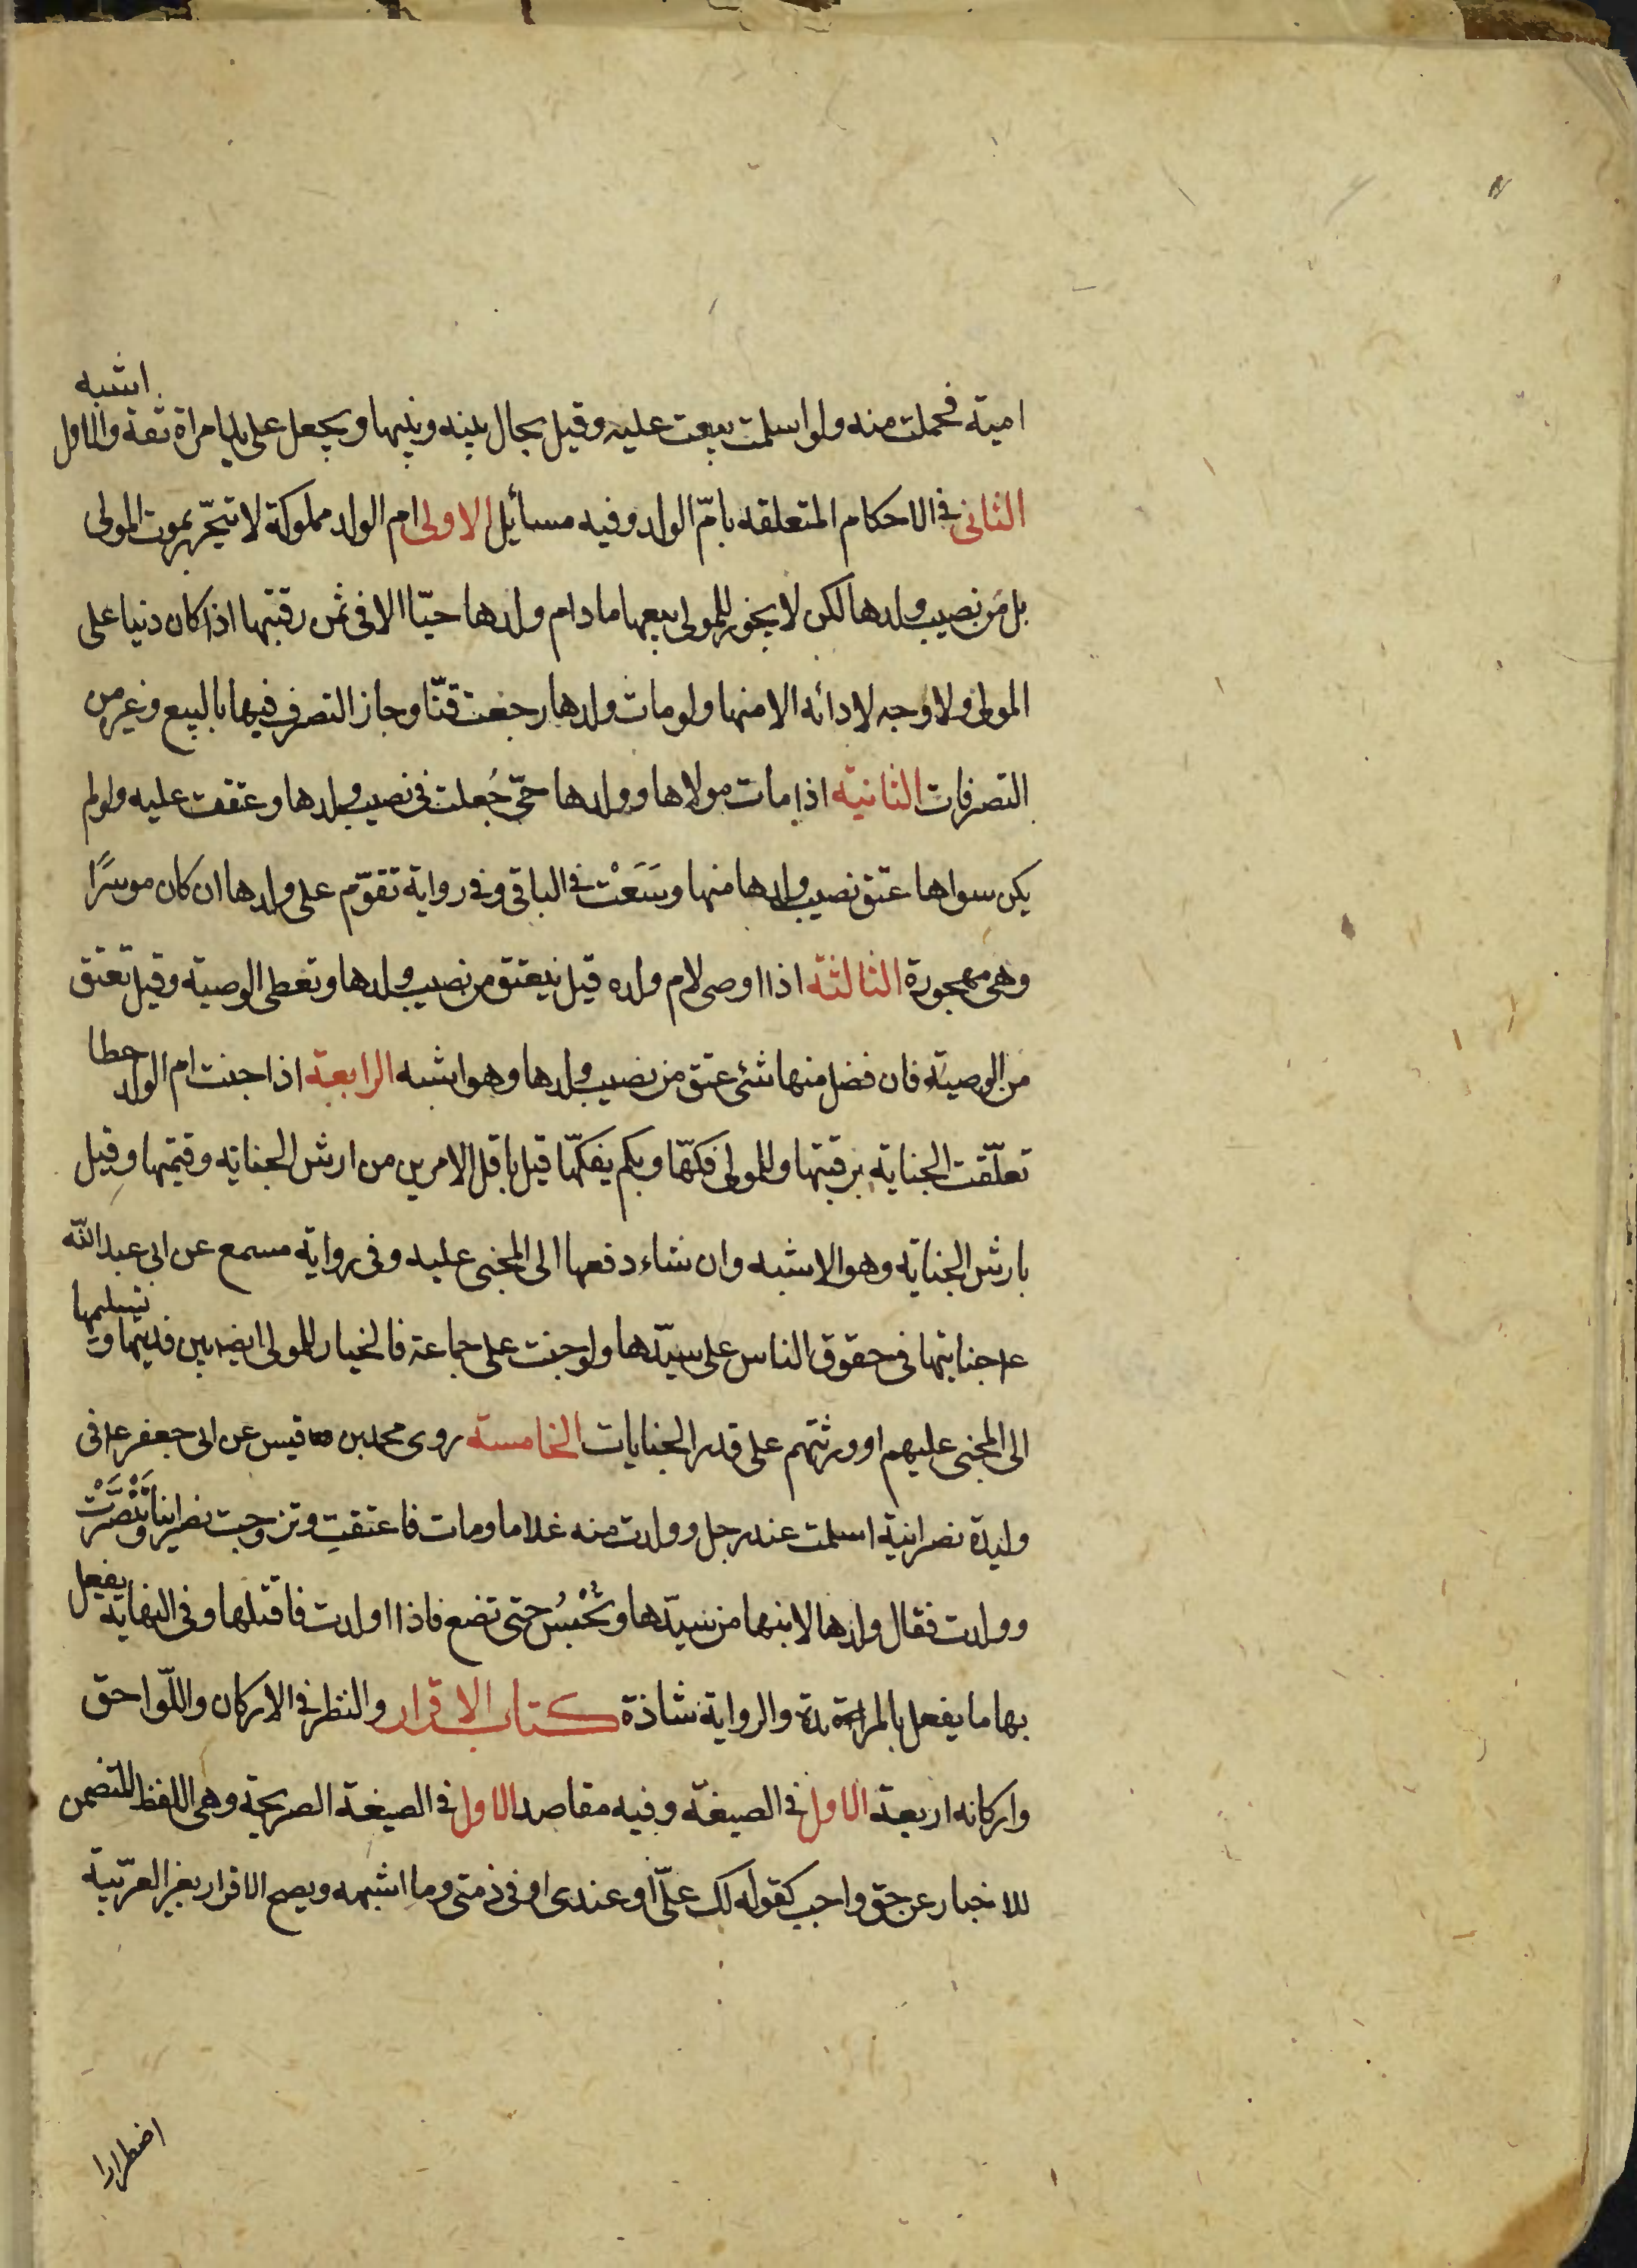 امية فحملت منه ولو اسلمت بيعت عليه وقيل يحال بينه وبينها ويجعل على يد امراة ثقة والاول اشبه
الثانى فى الاحكام المتعلقه بامّ الولد وفيه مسائيل الاولى ام الولد مملوكة لا تتحرّر بموت المولى
بل من نصيب ولدها لكن لا يجوز للمولى بيعها ما دام ولدها حيّا الا فى ثمن رقبتها اذا كان دنيا على
المولى ولا وجه لادائه الا منها ولو مات ولدها رجعت قنّا وجاز التصرف فيها بالبيع وغير من
التصرفات الثانية اذا مات مولاها وولدها حىّ جُعلت فى نصيب ولدها وعتقت عليه ولو لم
يكن سواها عتق نصيب ولدها منها وسَعَتْ فى الباقى وفى رواية تقوّم على ولدها ان كان موسرًا
وهى مهجورة الثالثة اذا اوصى لام ولده قيل ينعتق من نصيب ولدها وتعطى الوصية وقيل تعتق
من الوصية فان فضل منها شئ عتق من نصيب ولدها وهو اشبه الرابعة اذا جنت ام الولد خطا
تعلّقت الجناية برقبتها وللمولى فكّها وبكم يفكّها قيل باقل الامرين من ارش الجناية وقيمتها وقيل
بارش الجناية وهو الاشبه وان شاء دفعها الى المجنى عليه وفى رواية مسمع عن ابى عبد الله
عم جنايتها فى حقوق الناس على سيّدها ولو جنت على جماعة فالخيار للمولى ايضه بين فديتها وتسليمها
الى المجنى عليهم او ورثتهم على قدر الجنايات الخامسة روى محمد بن قيس عن ابى جعفر عم فى
وليدة نصرانية اسلمت عند رجل وولدت منه غلاما ومات فاعتقت وتزوجت نصرانيا وتَنَصَّرَتْ
وولدت فقال ولدها لابنها من سيّدها وتُحْبَسُ حتى تضع فاذا اولدت فاقتلها وفى النهاية يفعل
بها ما يفعل بالمرتدة والرواية شاذة كتاب الاقرار والنظر فى الاركان واللّواحق
واركانه اربعة الاول فى الصيغة وفيه مقاصد الاول فى الصيغة الصريحة وهى اللفظ المتضمن
للاخبار عن حق واجب كقوله لك علىّ او عندى او فى ذمتى وما اشبهه ويصح الاقرار بغير العربية
اضطرارا